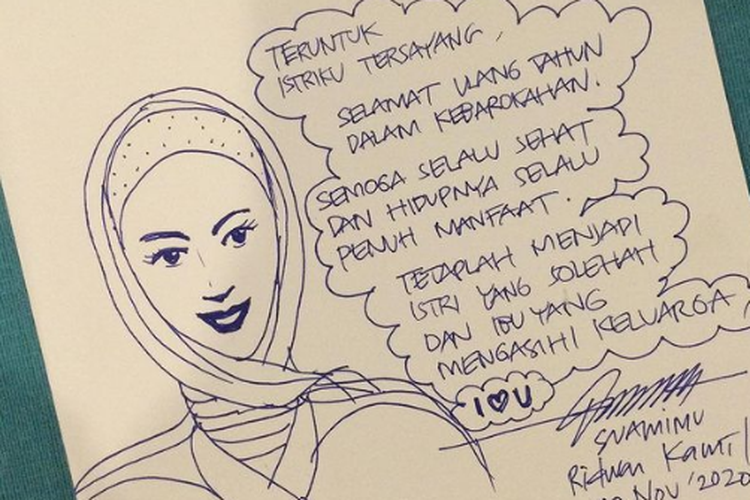 TERUNTUK
ISTRIKU TERSAYANG,
SELAMAT ULANG TAHUN
DALAM KEBAROKAHAN.
SEMOGA SELALU SEHAT
DAN HIDUPNYA SELALU
PENUH MANFAAT.
TETAPLAH MENJADI
ISTRI YANG SOLEHAH
DAN IBU YANG
MENGASIHI KELUARGA,
I ♥ U
SUAMIMU
Ridwan Kamil
Nov '2020